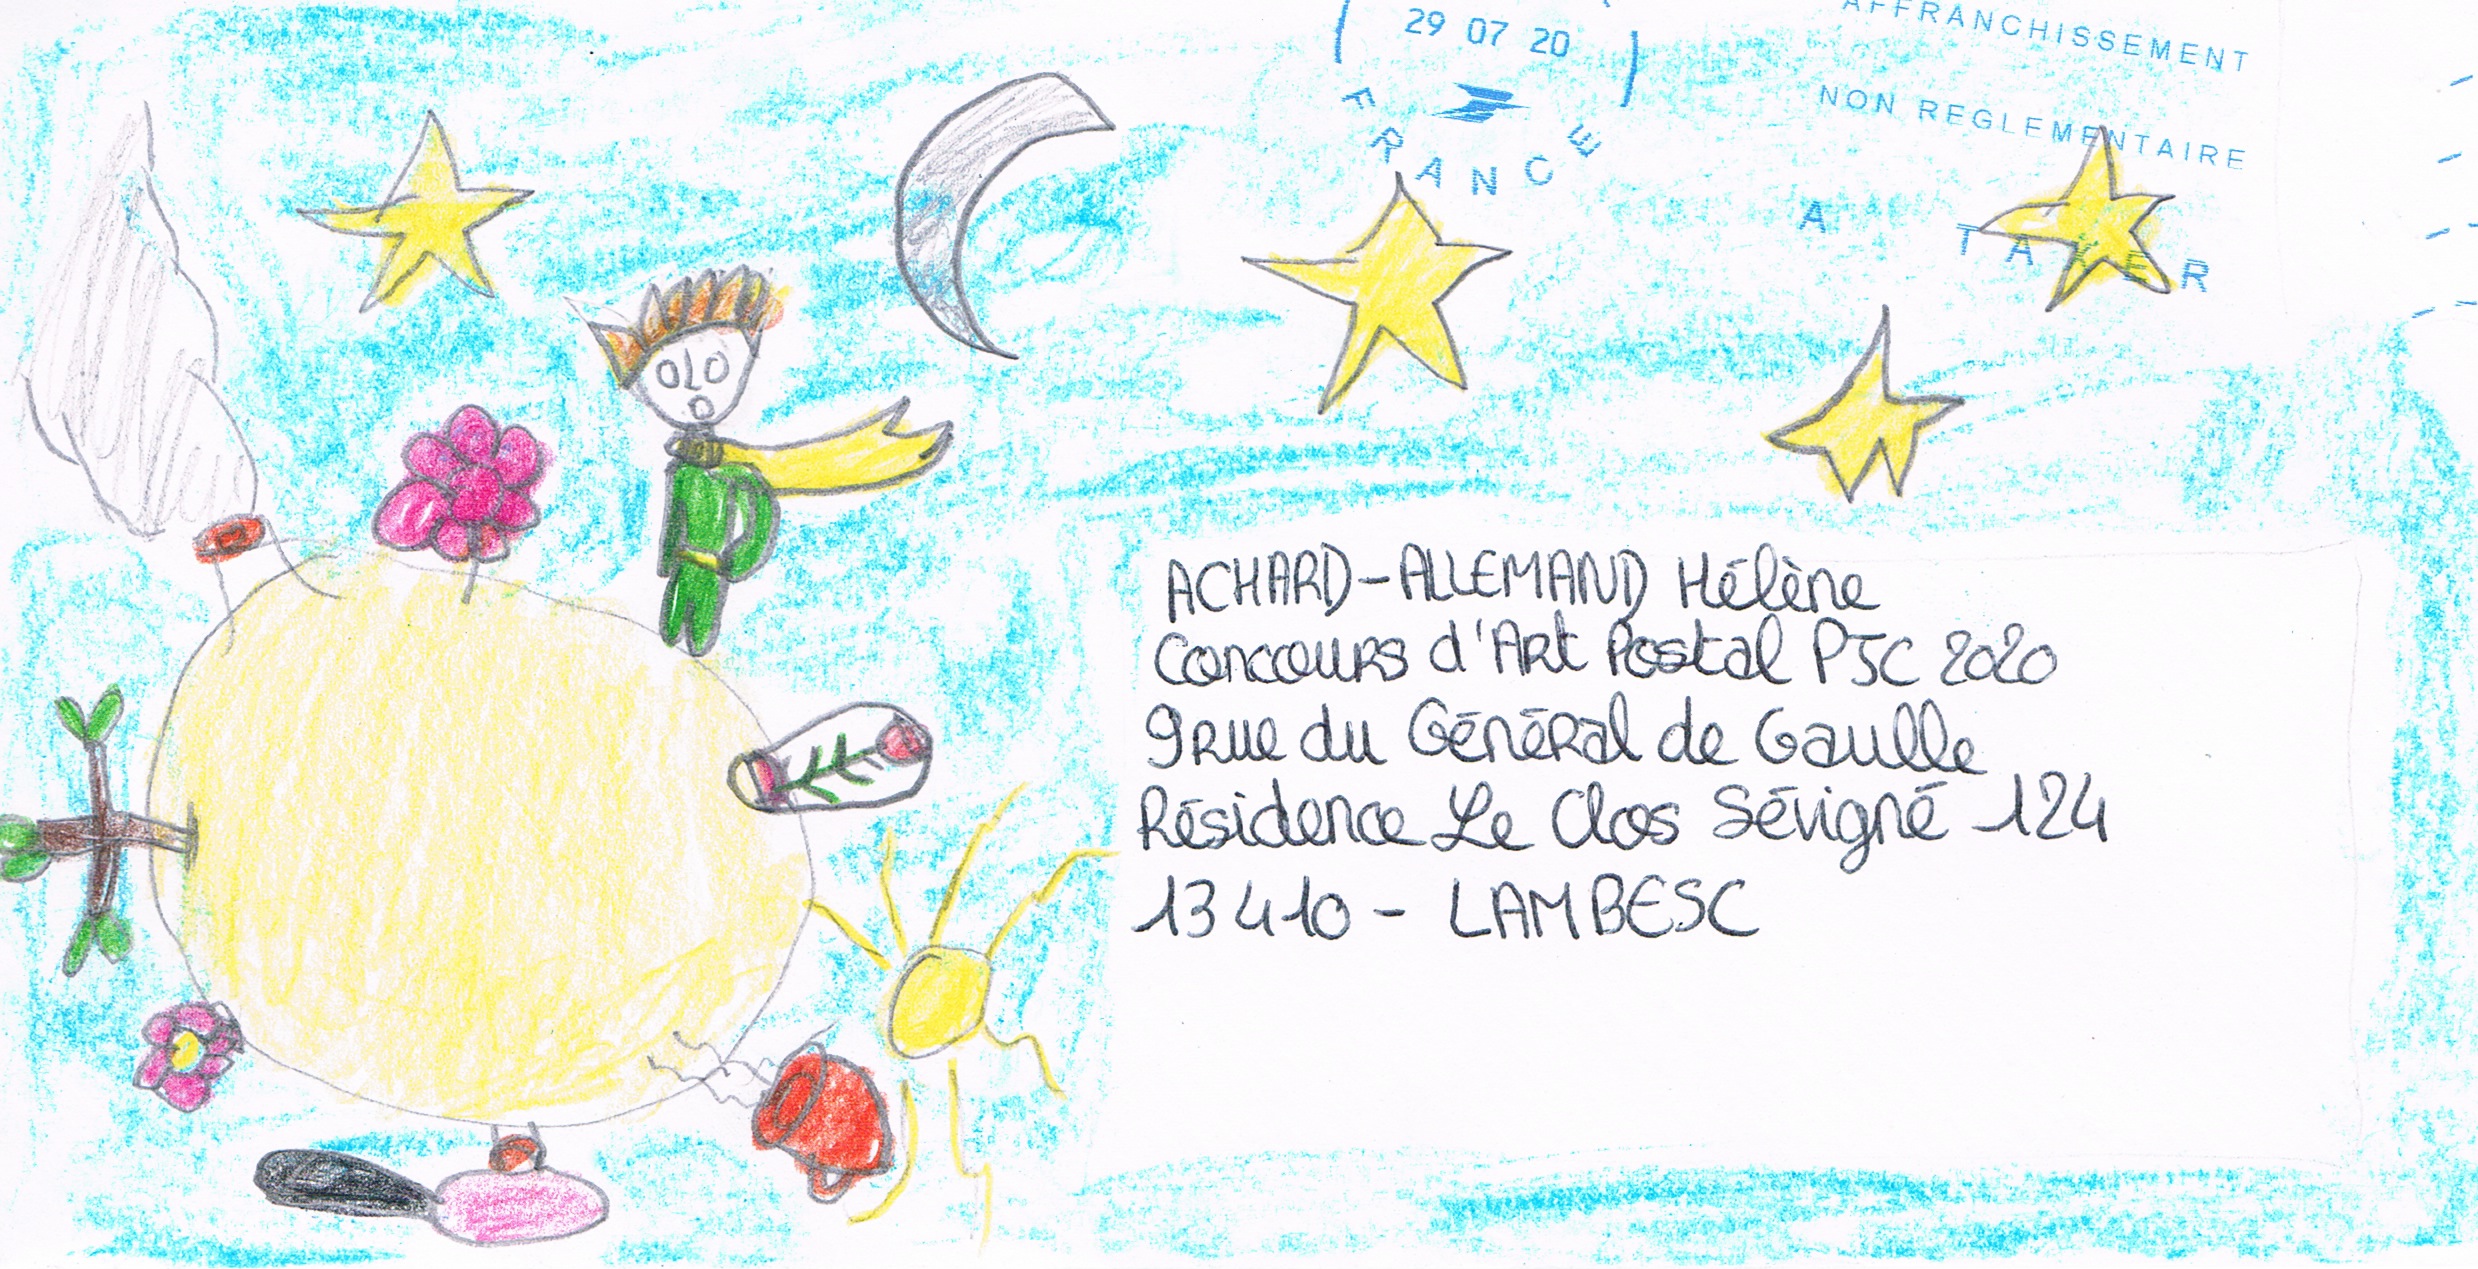 29 07 20
FRANCE
AFFRANCHISSEMENT
NON REGLEMENTAIRE
A TAXER
ACHARD-ALLEMAND Hélène
Concours d'Art Postal PJC 2020
9 rue du Général de Gaulle
Résidence Le Clos Sévigné 124
13410 - LAMBESC